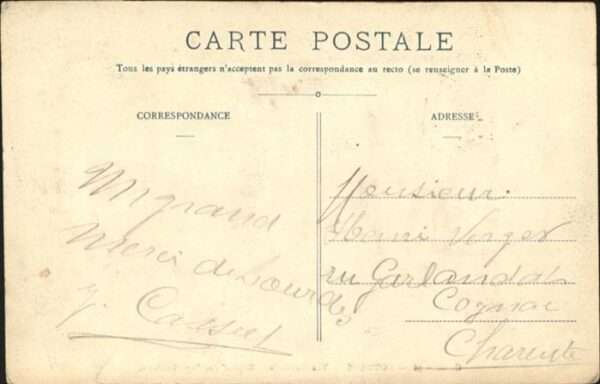 CARTE POSTALE
Tous les pays étrangers n'acceptent pas la correspondance au recto (se renseigner à la Poste)
CORRESPONDANCE
ADRESSE
grand
merci de Lourdes
Monsieur
Henri Verger
Cognac
Charente